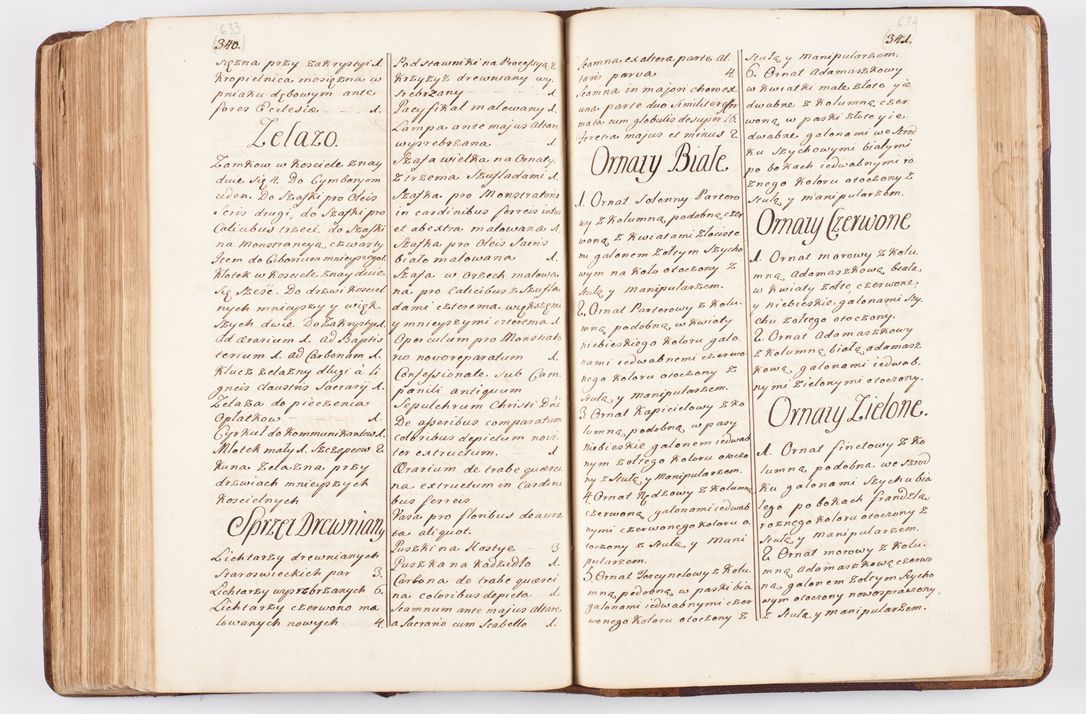 633
340.
sięzna przy zakrystyi 1.
Kropielnica mosięzna w
pniaku dębowym ante
fores Eclesiæ 1.
Zelazo.
Zamkow w Kościele znay
duie się 4. Do Cymboryom
ieden. Do Szafki pro Oleis
Scris drugi, do Szafki pro
Calicibus trzeci, do Szafki
na Monstrancyą czwarty
Item do Ciborium mnieyszego 1.
Klotek w Kościele znayduie
się Sześć. Do drzwi Kosciel
nych mnieyszy y więk
szych dwie. Do Zakrystyi 1.
ad Ærarium 1. ad Baptis
terium 1. ad Carbonam 1.
Klucz zelazny długi à li
gneis claustris Sacrarij 1.
Zelaza do pieczenia
Opłatkow 1.
Cyrkul do Kommunikantow 1.
Młotek mały 1. Szczypcow 2
Kuna Zelazna przy
drzwiach mnieyszych
Kościelnych
Sprzęt Drewniany
Lichtarzy drewnianych
Staroswieckich par 3.
Lichtarzy wysrzbrzanych 6.
Lichtarzy czerwono ma
lowanych nowych 4.
Podstawniki na Processyą 2
Krzyzyz drewniany wy
srebrzany 1.
Pacyfikał malowany 1.
Lampa ante majus Altare
wysrebrzana 1.
Szafa wielka na Ornaty
z trzema Szufladami 1.
Szafka pro Monstratorio
in cardinibus ferreis intus
et ab extra malowana 1.
Szafka pro Oleis Sacris
biało malowana 1.
Szafa w Orzech malowa
na pro Calicibus z Szufla
dami czterema większemi
y mnieyszymi czterema 1.
Operculum pro Monstrato
rio novo reparatum 1.
Confessionale sub Cam
panili antiquum
Sepulchrum Christi Dni
De asseribus comparatum
coloribus depictum novi
ter extructum. 1.
Ærarium de trabe querci
na extructum in Cardini
bus ferreis
Vasa pro floribus deaura
ta aliquot.
Puszki na Hostye 3
Puszka na Kadzidło 1.
Carbona de trabe querci
na coloribus depicta 1.
Scamnum ante majus Altare
a Sacrario cum Scabello 1.
634
341.
Scamna ex altera parte Al
taris parva 4.
Scamna in majori choro ex
una parte duo similiter for
mata cum globulis desuper 16.
Feretra majus et minus 2.
Ornaty Białe.
1. Ornat Solenny Partero
wy z Kolumną podobną czer
woną z Kwiatami złociste
mi galonem zołtym Szycho
wym na koło otoczony z
Stulą y manipularzem.
2. Ornat Parterowy z Kolu
mną podobną w Kwiaty
niebieskiego Koloru galo
nami iedwabnemi czerwo
nego Koloru otoczony z
Stulą y manipularzem.
3. Ornat Kapicielowy z Ko
lumną podobną w pasy
niebieskie galonem iedwab
nym zołtego Koloru otoczo
ny z Stulą y Manipularzem.
4. Ornat Rządzowy z Kolumną
czerwoną galonami iedwab
nymi czerwonego Koloru o
toczony z Stulą y Mani
pularzem.
5. Ornat Tercynelowy z Kolu
mną podobną w paski bia
galonami iedwabnymi czer
wonego Koloru otoczony z
Stułą y manipularzem.
6. Ornat Adamaszkowy
w Kwiatki małe złote y ie
dwabne z Kolumną czer
woną w paski złote y ie
dwabne galonami we Srod
ku Szychowymi białymi
po bokach iedwabnymi ro
znego Koloru otoczony z
Stulą y manipularzem.
Ornaty Czerwone
1. Ornat morowy z Kolu
mną Adamaszkową białą
w Kwiaty zołte czerwone,
y niebieskie galonami Szy
chu zołtego otoczony.
2. Ornat Adamaszkowy
z Kolumną białą adamasz
kową galonami iedwab
nymi zielonymi otoczony.
Ornaty Zielone.
1. Ornat finetowy z Ko
lumną podobną we Srod
ku galonami Szychu bia
łego po bokach frandzlą
roznego Koloru otoczony z
Stulą y manipularzem.
2. Ornat morowy z Kolu
mną Adamaszkową czerwo
ną galonem zołtym Szycho
wym otoczony nowo sprawiony
z Stulą y manipularzem.